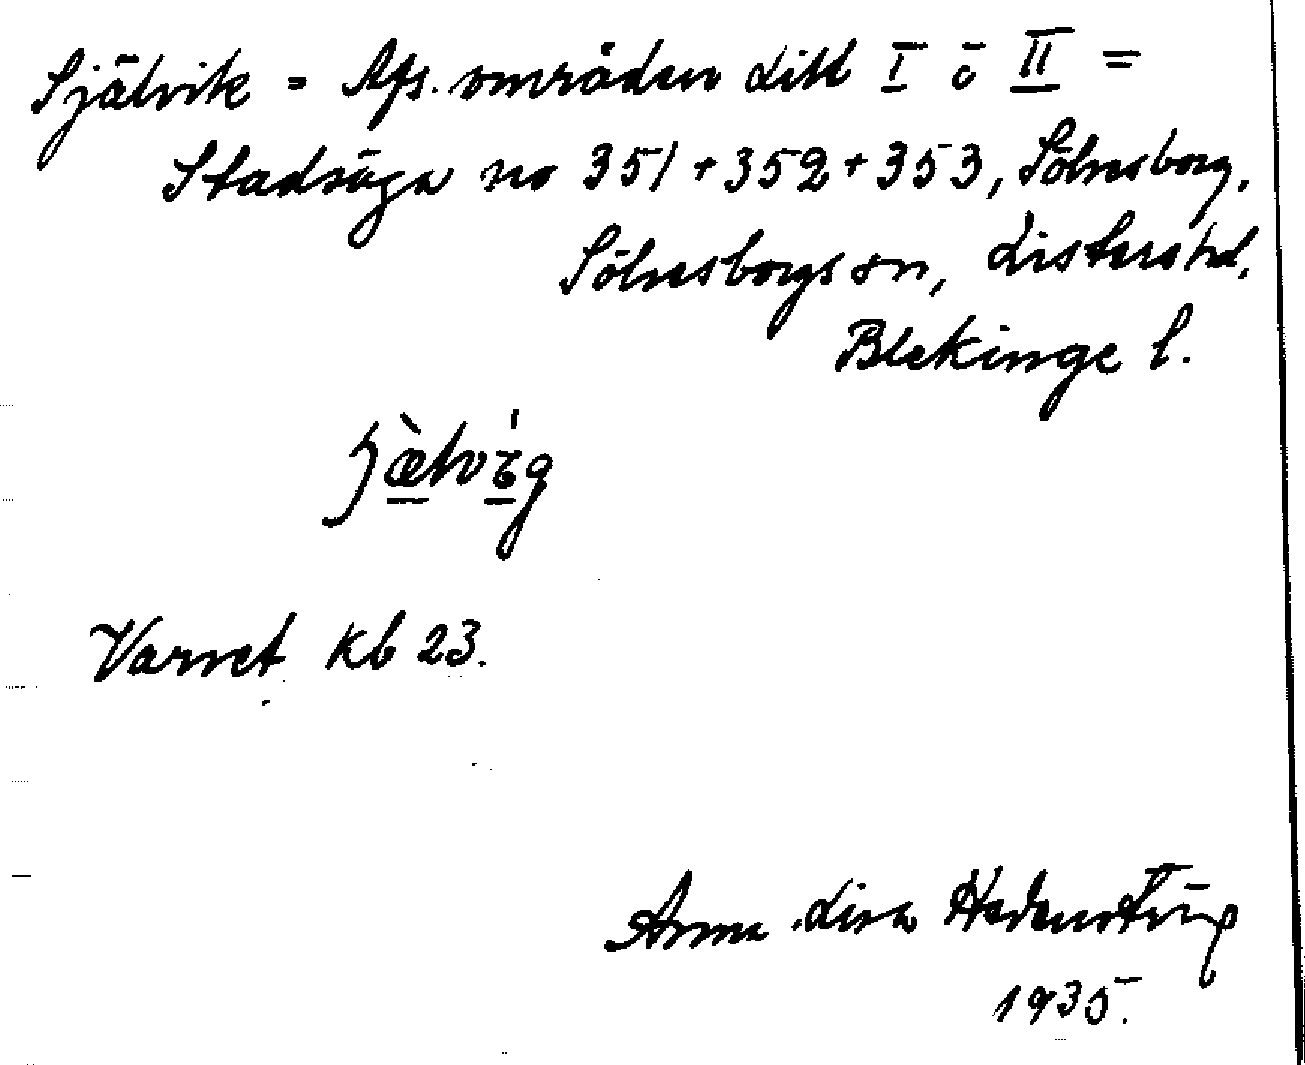 Självik = Afs. områden Litt I ō II =
Stadsäga no 351+352+353, Sölvesborg,
Sölvesborgs sn, Listers hd,
Blekinge l.
ʃæ̀lvɩ́g
Varvet Kb 23.
Anna Lisa
1935.